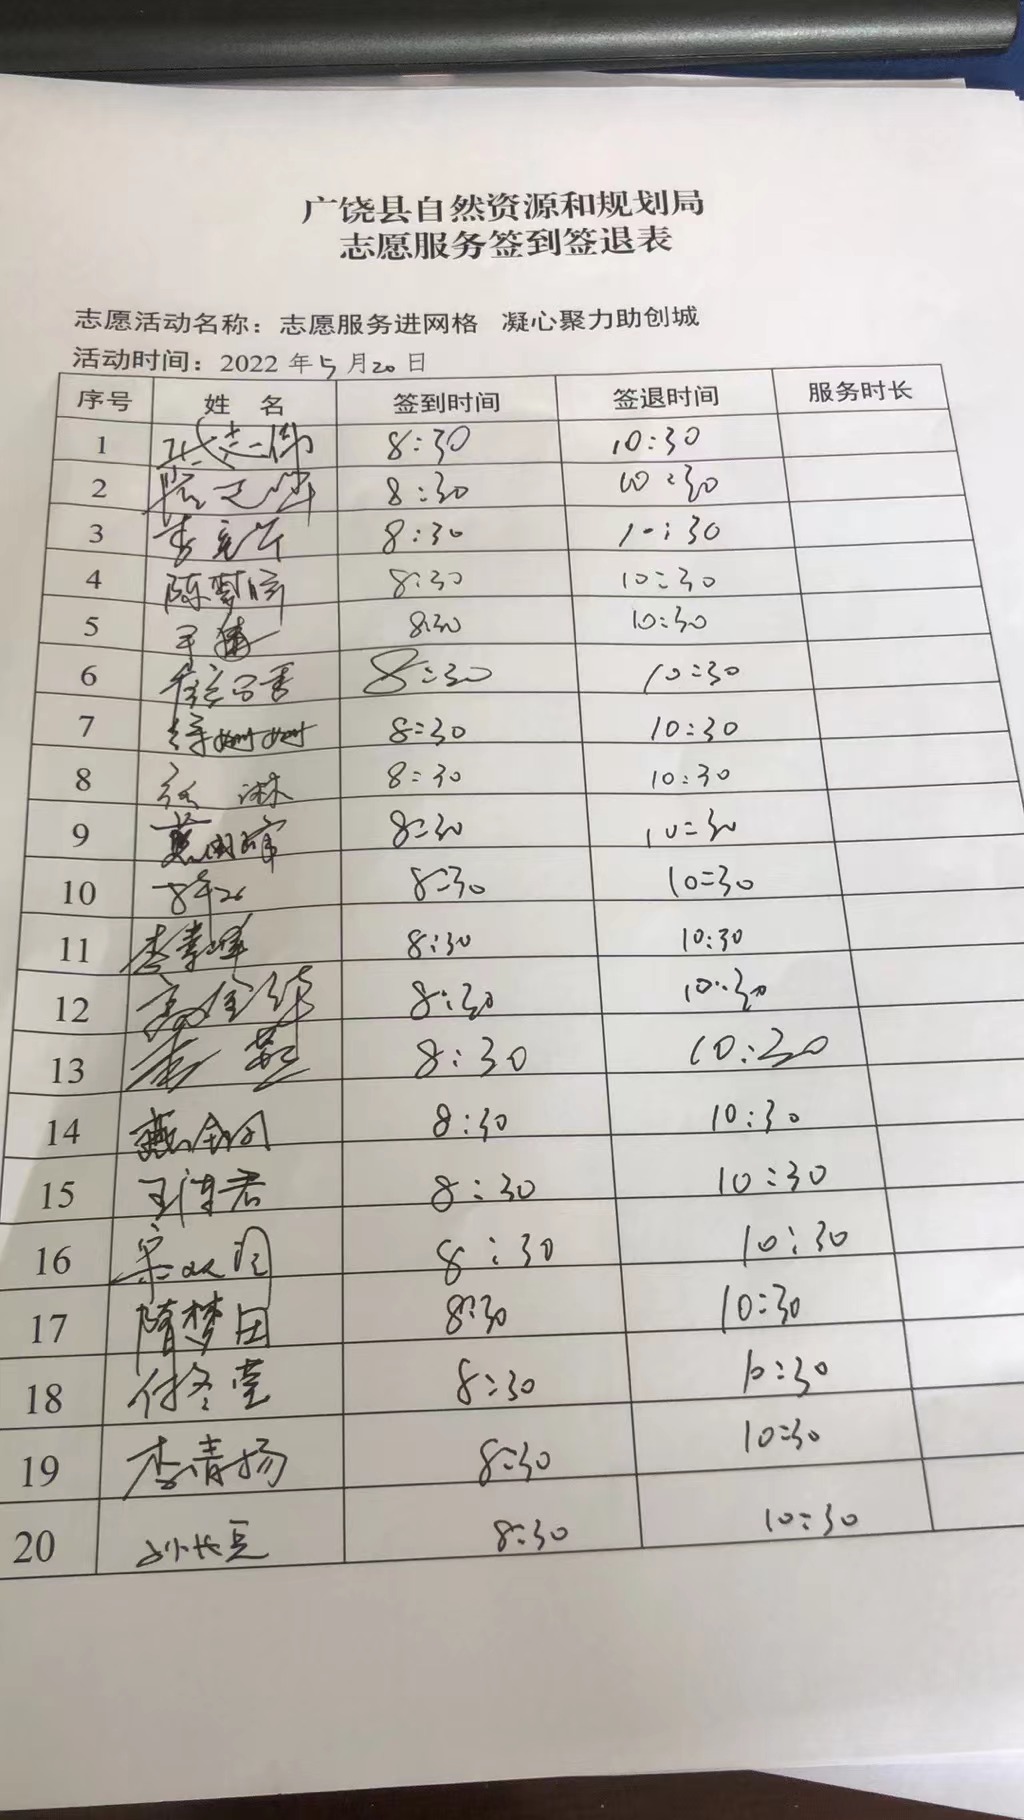 广饶县自然资源和规划局
志愿服务签到签退表
志愿活动名称：志愿服务进网格 凝心聚力助创城
活动时间：2022 年 5 月 20 日
序号 姓 名 签到时间 签退时间 服务时长
1 8:30 10:30
2 8:30 10:30
3 8:30 10:30
4 陈梦 8:30 10:30
5 8:30 10:30
6 8:30 10:30
7 徐姗姗 8:30 10:30
8 张 淋 8:30 10:30
9 8:30 10:30
10 8:30 10:30
11 李 8:30 10:30
12 8:30 10:30
13 8:30 10:30
14 8:30 10:30
15 王 君 8:30 10:30
16 宋双 8:30 10:30
17 隋梦田 8:30 10:30
18 付冬莹 8:30 10:30
19 李清扬 8:30 10:30
20 孙长 8:30 10:30